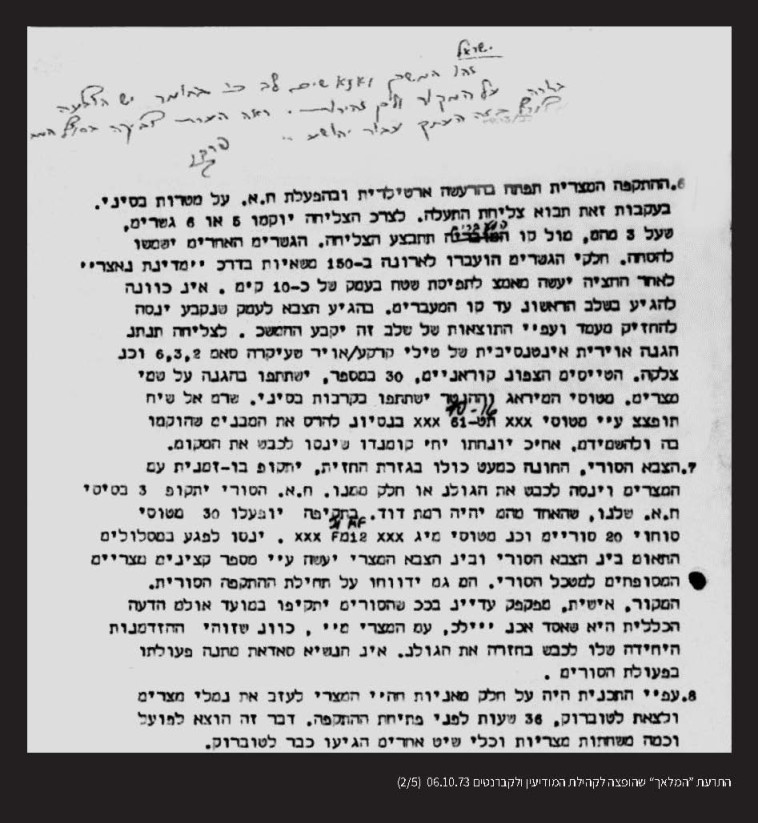 ישראל
6.ההתקפה המצרית תפתח בהרעשה ארטילרית ובהפעלת ח.א. על מטרות בסיני.
בעקבות זאת תבוא צליחת התעלה. לצרכ הצליחה יוקמו 5 או 6 גשרים,
שעל 3 מהם, מול קו תתבצע הצליחה. הגשרים האחרים ישמשו
להסחה. חלקי הגשרים הועברו לארונה ב-150 משאיות בדרכ יימדינת נאצריי
לאחר החציה יעשה מאמצ לתפיסת שטח בעמק של כ-10 קימ . אינ כוונה
להגיע בשלב הראשונ עד קו המעברים. בהגיע הצבא לעמק שנקבע ינסה
להחזיק מעמד ועפיי התוצאות של שלב זה יקבע ההמשכ . לצליחה תנתנ
הגנה אוירית אינטנסיבית של טילי קרקע/אויר שעיקרה סאמ 6,3,2 וכנ
צלקה. הטייסים הצפונ קוראניים, 30 במספר, ישתתפו בהגנה על שמי
מצרים. מטוסי המיראג וההנטר ישתתפו בקרבות בסיני. שרמ אל שיח
תופצצ עיי מטוסי xxx תט-16 xxx בנסיונ להרס את המבנים שהוקמו
בה ולהשמידם. אחיכ יונחתו יחי קומנדו שינסו לכבש את המקום.
7.הצבא הסורי, החונה כמעט כולו בגזרת החזית, יתקופ בו-זמנית עם
המצרים וינסה לכבש את הגולנ או חלק ממנו. ח.א. הסורי יתקופ 3 בסיסי
ח.א. שלנו, שהאחד מהם יהיה רמת דוד. בתקיפה יופעלו 30 מטוסי
סוחוי 20 סוריים וכנ מטוסי מיג xxx 12מF xxx . ינסו לפגע במסלולים
התאום בינ הצבא הסורי ובינ הצבא המצרי יעשה עיי מספר קצינים מצריים
המסופחים למטכל הסורי. הם גם ידווחו על תחילת ההתקפה הסורית.
המקור, אישית, מפקפק עדיינ בככ שהסורים יתקיפו במועד אולם הדעה
הכללית היא שאסד אכנ יייילכ, עם המצרי מיי , כוונ שזוהי ההזדמנות
היחידה שלו לכבש בחזרה את הגולנ. אינ הנשיא סאדאת מתנה פעולתו
בפעולת הסורים .
8.עפיי התכנית היה על חלק מאניות חהיי המצרי לעזב את נמלי מצרים
ולצאת לטוברוק, 36 שעות לפני פתיחת ההתקפה. דבר זה הוצא לפועל
וכמה משחתות מצריות וכלי שיט אחרים הגיעו כבר לטוברוק.
התרעת "המלאך" שהופצה לקהילת המודיעין ולקברנטים 06.10.73 (2/5)